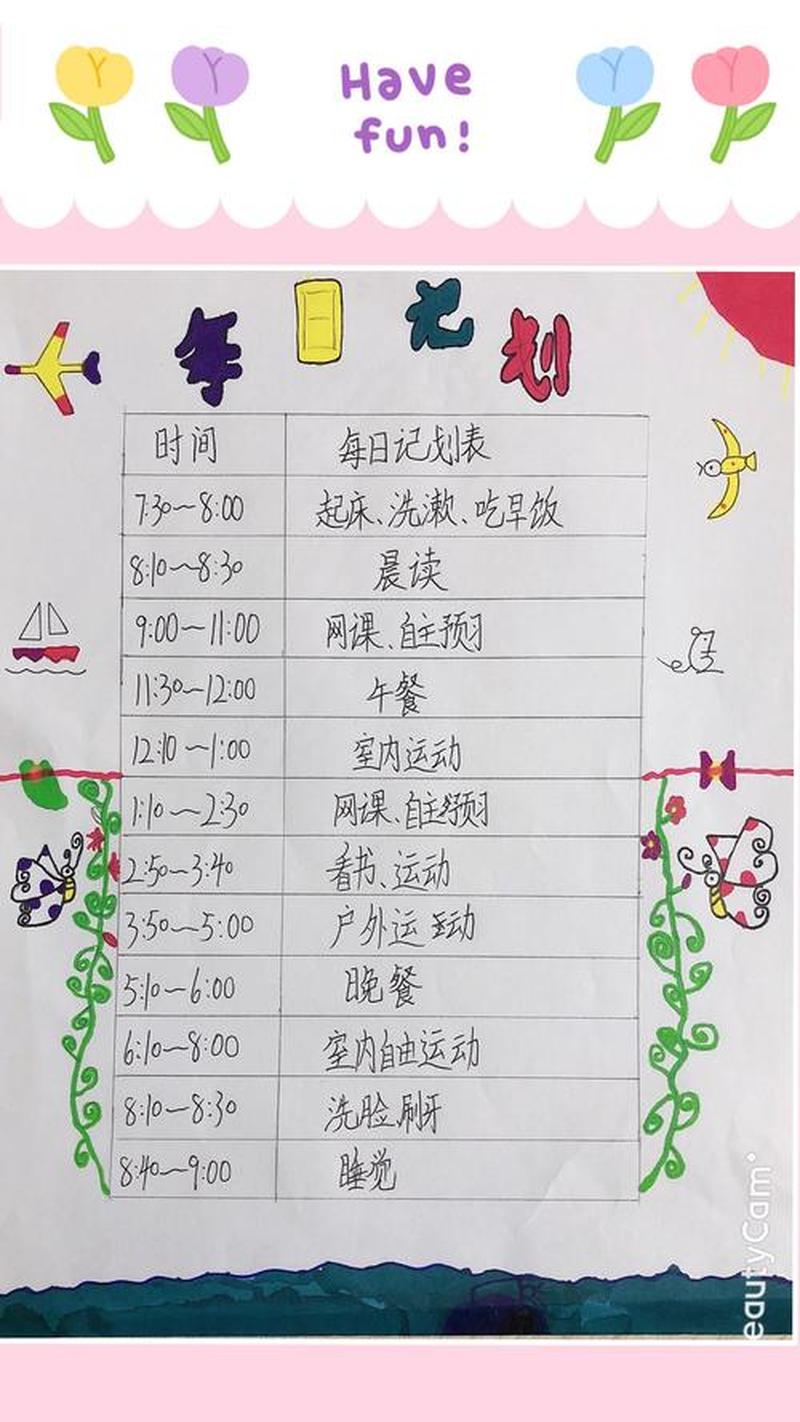 Have
fun!
每日记划
时间 每日记划表
7:30~8:00 起床、洗漱、吃早饭
8:10~8:30 晨读
9:00~11:00 网课、自主预习
11:30~12:00 午餐
12:10~1:00 室内运动
1:10~2:30 网课、自主预习
2:50~3:40 看书、运动
3:50~5:00 户外运动
5:10~6:00 晚餐
6:10~8:00 室内自由运动
8:10~8:30 洗脸刷牙
8:40~9:00 睡觉
eautyCam